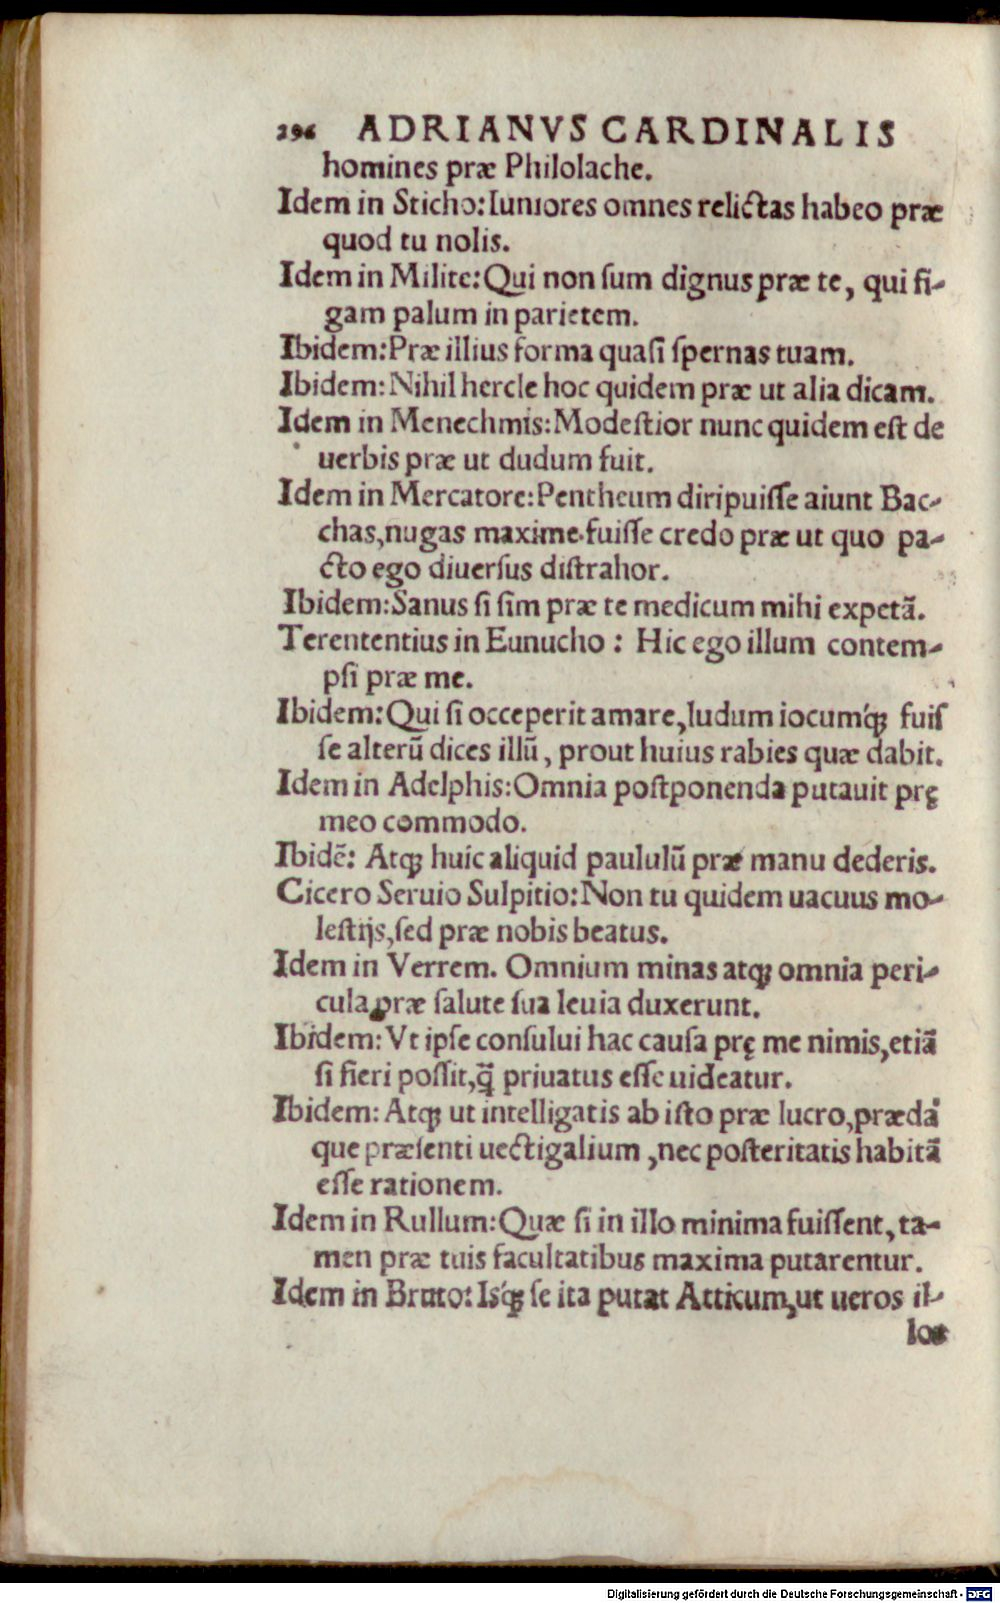 296 ADRIANVS CARDINALIS
homines præ Philolache.
Idem in Sticho:Iuniores omnes relictas habeo præ
quod tu nolis.
Idem in Milite:Qui non ſum dignus præ te, qui fi-
gam palum in parietem.
Ibidem:Præ illius forma quaſi ſpernas tuam.
Ibidem:Nihil hercle hoc quidem præ ut alia dicam.
Idem in Menechmis:Modeſtior nunc quidem eſt de
uerbis præ ut dudum fuit.
Idem in Mercatore:Pentheum diripuiſſe aiunt Bac-
chas,nugas maxime fuiſſe credo præ ut quo pa-
cto ego diuerſus diſtrahor.
Ibidem:Sanus ſi ſim præ te medicum mihi expetã.
Terententius in Eunucho : Hic ego illum contem-
pſi præ me.
Ibidem:Qui ſi occeperit amare,ludum iocumq́ꝫ fuiſ
ſe alterũ dices illũ, prout huius rabies quæ dabit.
Idem in Adelphis:Omnia poſtponenda putauit prę
meo commodo.
Ibidẽ: Atqꝫ huic aliquid paululũ præ manu dederis.
Cicero Seruio Sulpitio:Non tu quidem uacuus mo-
leſtijs,ſed præ nobis beatus.
Idem in Verrem. Omnium minas atqꝫ omnia peri-
cula præ ſalute ſua leuia duxerunt.
Ibidem: Vt ipſe conſului hac cauſa prę me nimis,etiã
ſi fieri poſſit,q̃ priuatus eſſe uideatur.
Ibidem: Atqꝫ ut intelligatis ab iſto præ lucro,prædã
que præſenti uectigalium,nec poſteritatis habitã
eſſe rationem.
Idem in Rullum:Quæ ſi in illo minima fuiſſent,ta-
men præ tuis facultatibus maxima putarentur.
Idem in Bruto: Iſq́ꝫ ſe ita putat Atticum,ut ueros il-
los
Digitalisierung gefördert durch die Deutsche Forschungsgemeinschaft - DFG